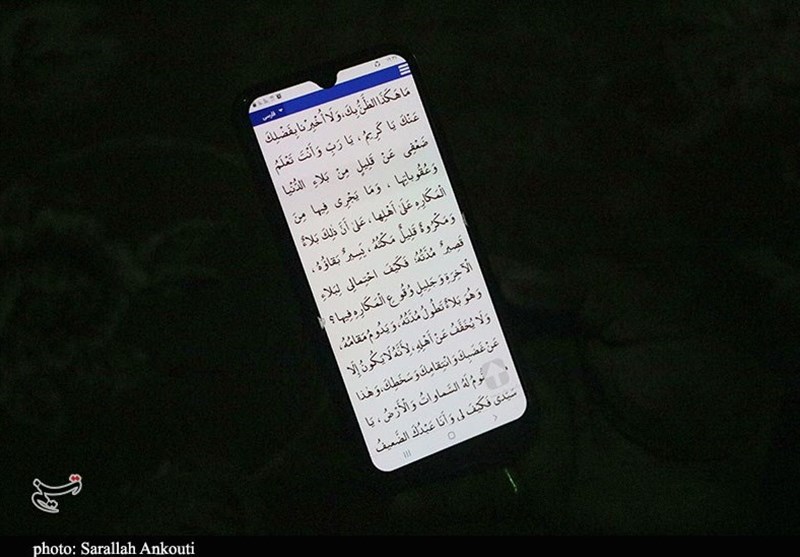 فارسی
مَا هَكَذَا الظَّنُّ بِكَ، وَلَا أُخْبِرْنَا بِفَضْلِكَ
عَنْكَ يَا كَرِيمُ، يَا رَبِّ وَأَنْتَ تَعْلَمُ
ضَعْفِى عَنْ قَلِيلٍ مِنْ بَلاءِ الدُّنْيا
وَعُقُوبَاتِهَا ، وَمَا يَجْرِى فِيها مِنَ
الْمَكَارِهِ عَلَى أَهْلِهَا، عَلَىٰ أَنَّ ذٰلِكَ بَلاءٌ
وَمَكْرُوهٌ قَلِيلٌ مَكْثُهُ، يَسِيرٌ بَقَاؤُهُ ،
قَصِيرٌ مُدَّتُهُ، فَكَيْفَ احْتِمالِى لِبَلاءِ
الْآخِرَةِ وَجَلِيلِ وُقُوعِ الْمَكارِهِ فِيها ؟
وَهُوَ بَلاءٌ تَطُولُ مُدَّتُهُ، وَيَدُومُ مَقامُهُ،
وَلَا يُخَفَّفُ عَنْ أَهْلِهِ، لِأَنَّهُ لَا يَكُونُ إِلّا
عَنْ غَضَبِكَ وَانْتِقامِكَ وَسَخَطِكَ، وَهٰذَا
لَهُ السَّماواتُ وَالْأَرْضُ ، يَا
سَيِّدِى فَكَيْفَ لِى وَأَنَا عَبْدُكَ الضَّعِيفُ
تسنیم
photo: Sarallah Ankouti